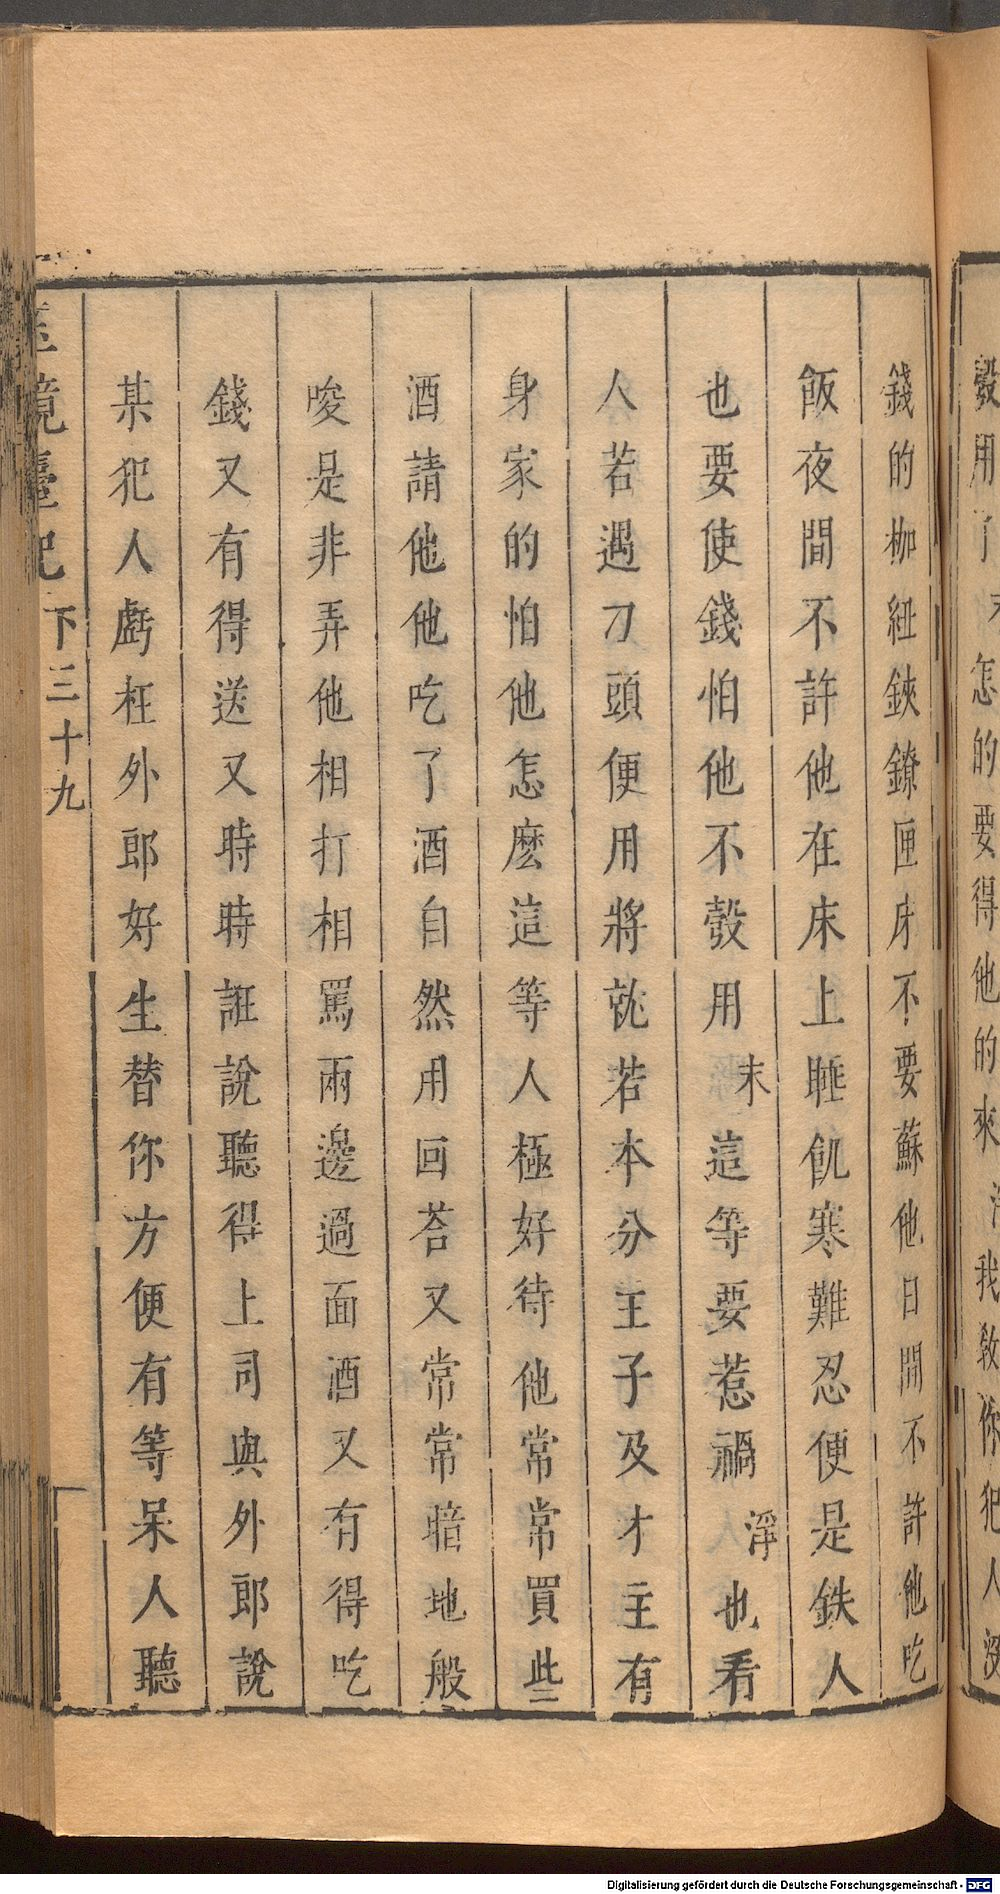 彀用了末怎的要得他的來淨我教你犯人沒
錢的枷紐鋏鐐匣床不要蘇他日間不許他吃
飯夜間不許他在床上睡飢寒難忍便是鉄人
也要使錢怕他不彀用末這等要惹禍淨也看
人若遇刁頭便用將就若本分主子及才主有
身家的怕他怎麽這等人極好待他常常買些
酒請他他吃了酒自然用回荅又常常暗地般
唆是非弄他相打相罵兩邊過面酒又有得吃
錢又有得送又時時誑說聽得上司與外郎說
某犯人虧枉外郎好生替你方便有等呆人聽
鏡臺記 下三十九
Digitalisierung gefördert durch die Deutsche Forschungsgemeinschaft - DFG